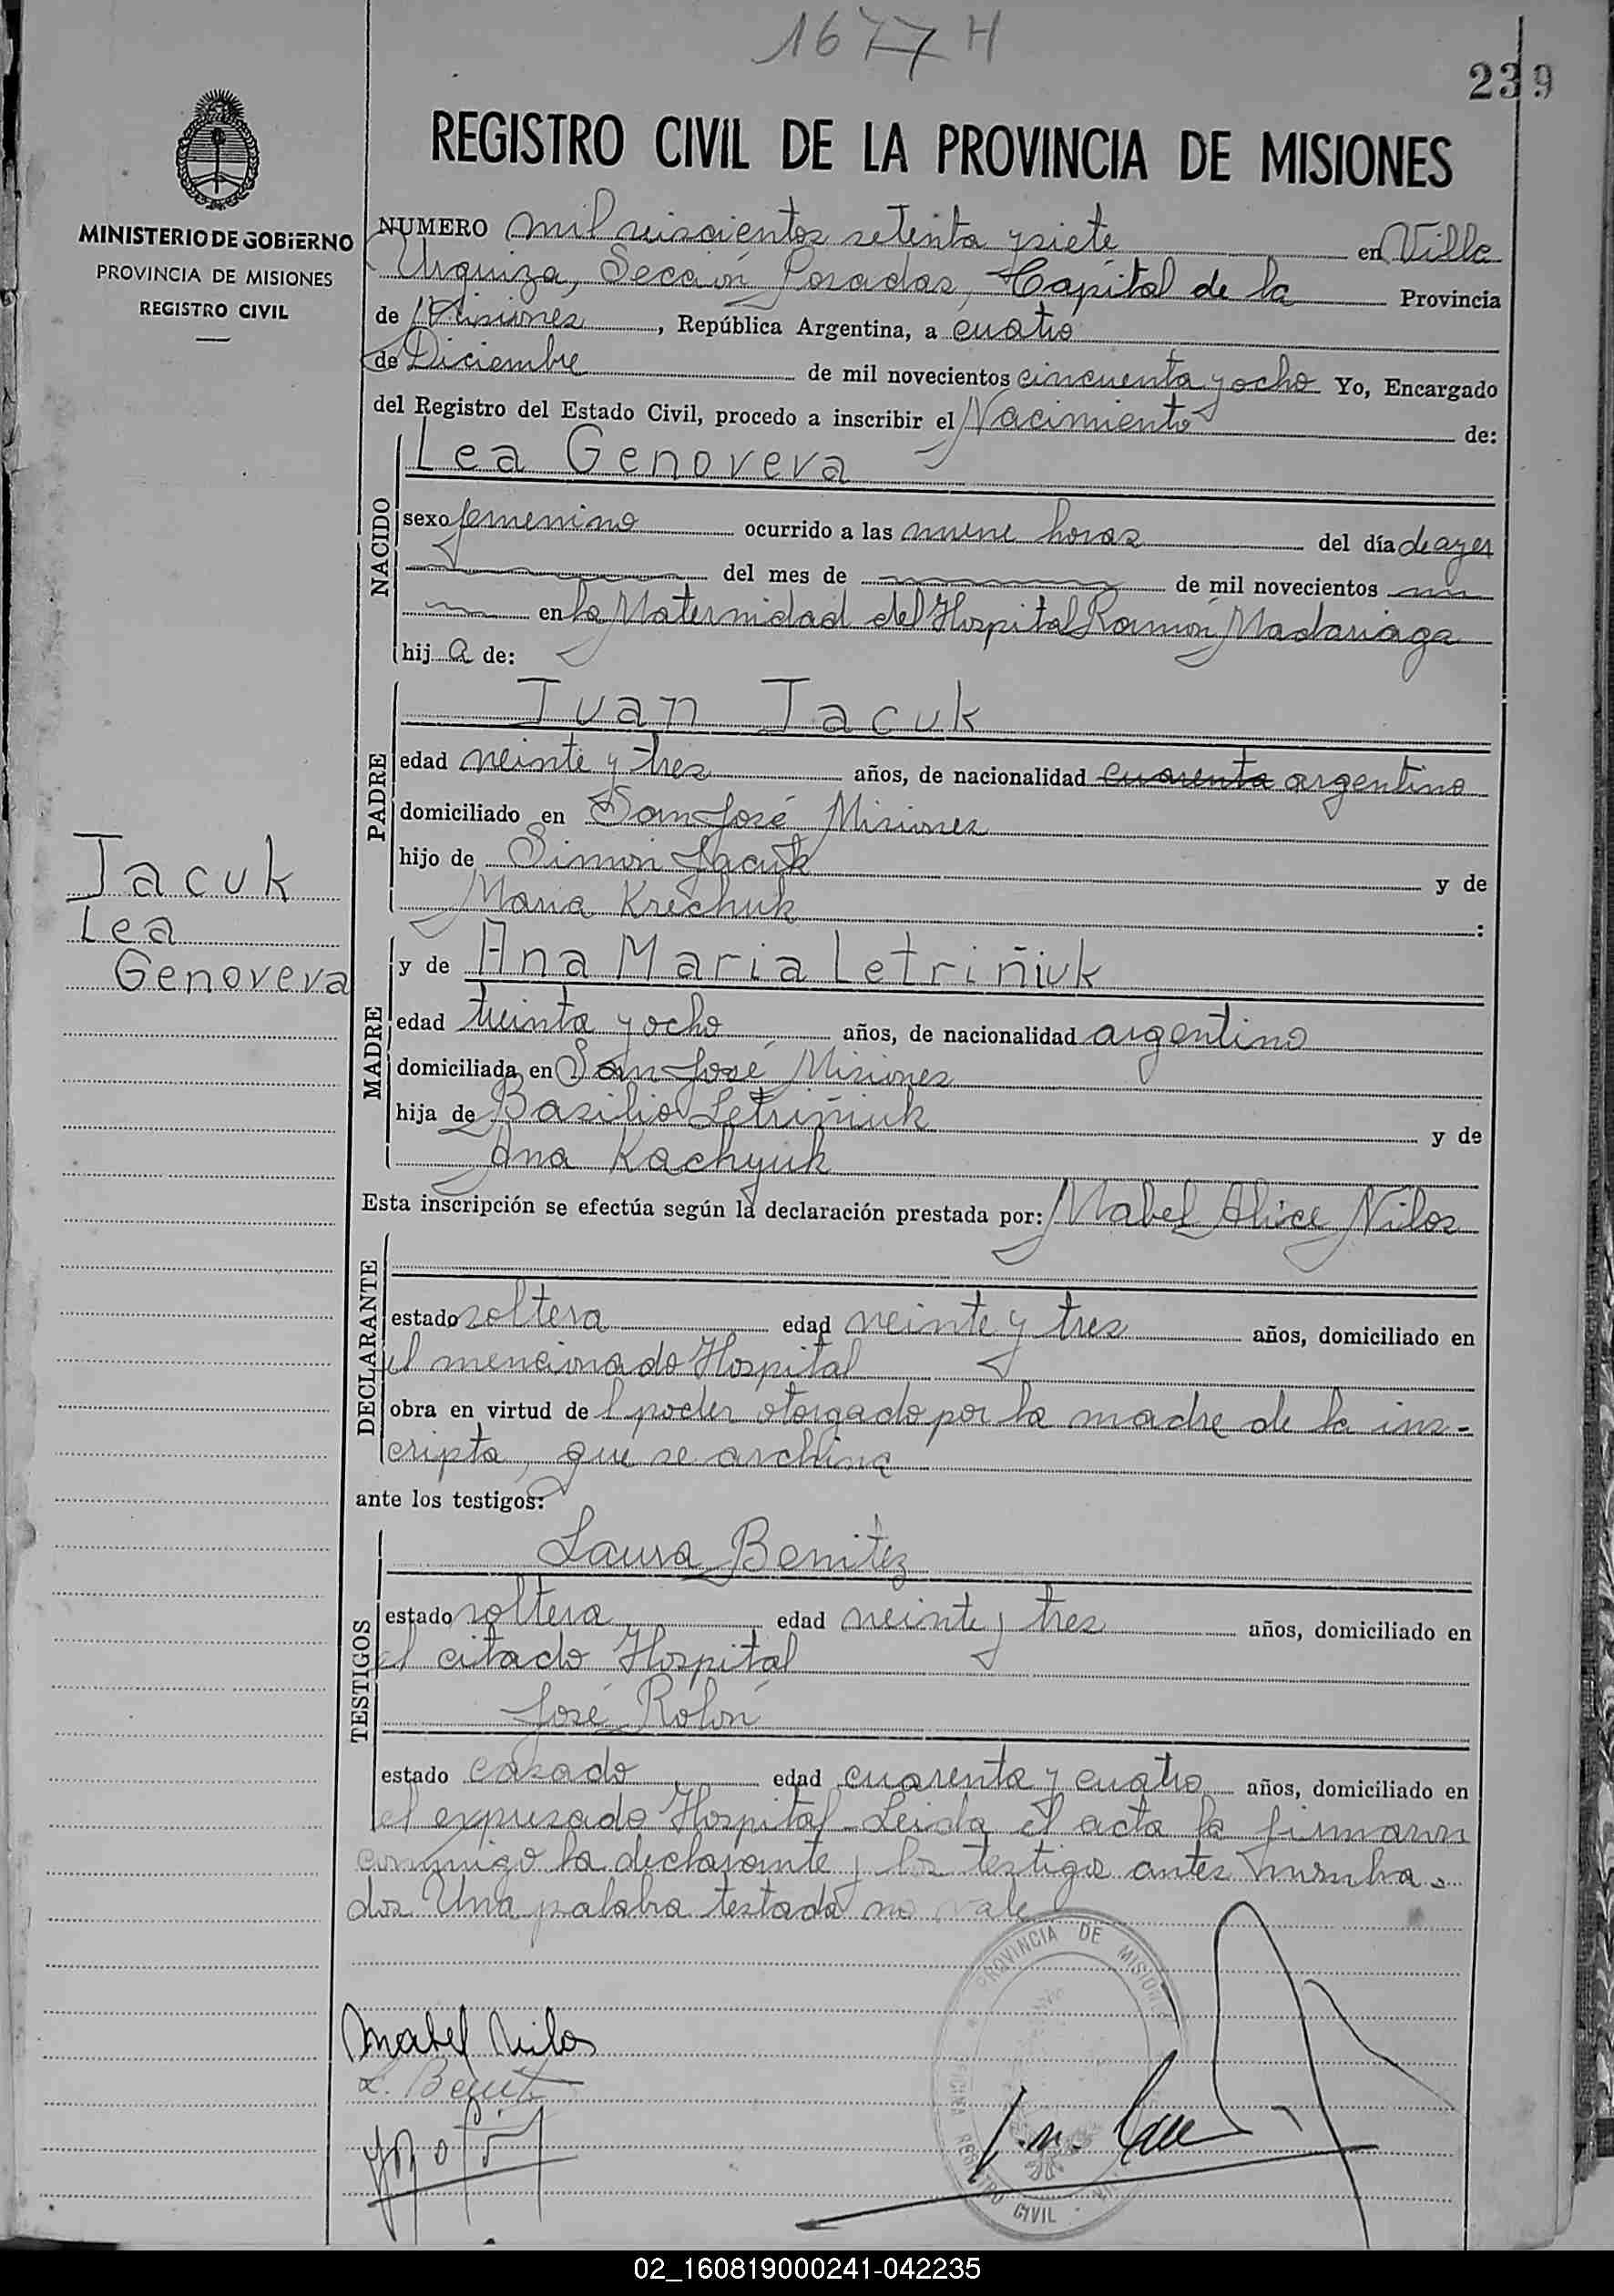 1677 H
239
REGISTRO CIVIL DE LA PROVINCIA DE MISIONES
MINISTERIO DE GOBIERNO
PROVINCIA DE MISIONES
REGISTRO CIVIL
NUMERO mil seiscientos setenta y siete en Villa
Urquiza, Sección Posadas, Capital de la Provincia
de Misiones, República Argentina, a cuatro
de Diciembre de mil novecientos cincuenta y ocho Yo, Encargado
del Registro del Estado Civil, procedo a inscribir el Nacimiento de:
NACIDO
Lea Genoveva
sexo femenino ocurrido a las nueve horas del día de ayer
del mes de de mil novecientos
en la Maternidad del Hospital Ramón Madariaga
hija de:
PADRE
Juan Jacuk
edad veinte y tres años, de nacionalidad cuarenta argentino
domiciliado en San José Misiones
hijo de Simon Jacuk y de
Maria Krechuk :
Jacuk
Lea
Genoveva
MADRE
y de Ana Maria Letriñiuk
edad treinta y ocho años, de nacionalidad argentino
domiciliada en San José Misiones
hija de Basilio Letriñiuk y de
Ana Kachyuk
Esta inscripción se efectúa según la declaración prestada por: Mabel Alice Nilos
DECLARANTE
estado soltera edad veinte y tres años, domiciliado en
el mencionado Hospital
obra en virtud del poder otorgado por la madre de la ins-
cripta, que se archiva
ante los testigos:
TESTIGOS
Laura Benitez
estado soltera edad veinte y tres años, domiciliado en
el citado Hospital
José Rolón
estado casado edad cuarenta y cuatro años, domiciliado en
el expresado Hospital - Leida el acta la firmaron
conmigo la declarante y los testigos antes nombra-
dos Una palabra testada no vale
PROVINCIA DE MISIONES
REGISTRO CIVIL
Mabel Nilos
L. Benitez
02_160819000241-042235